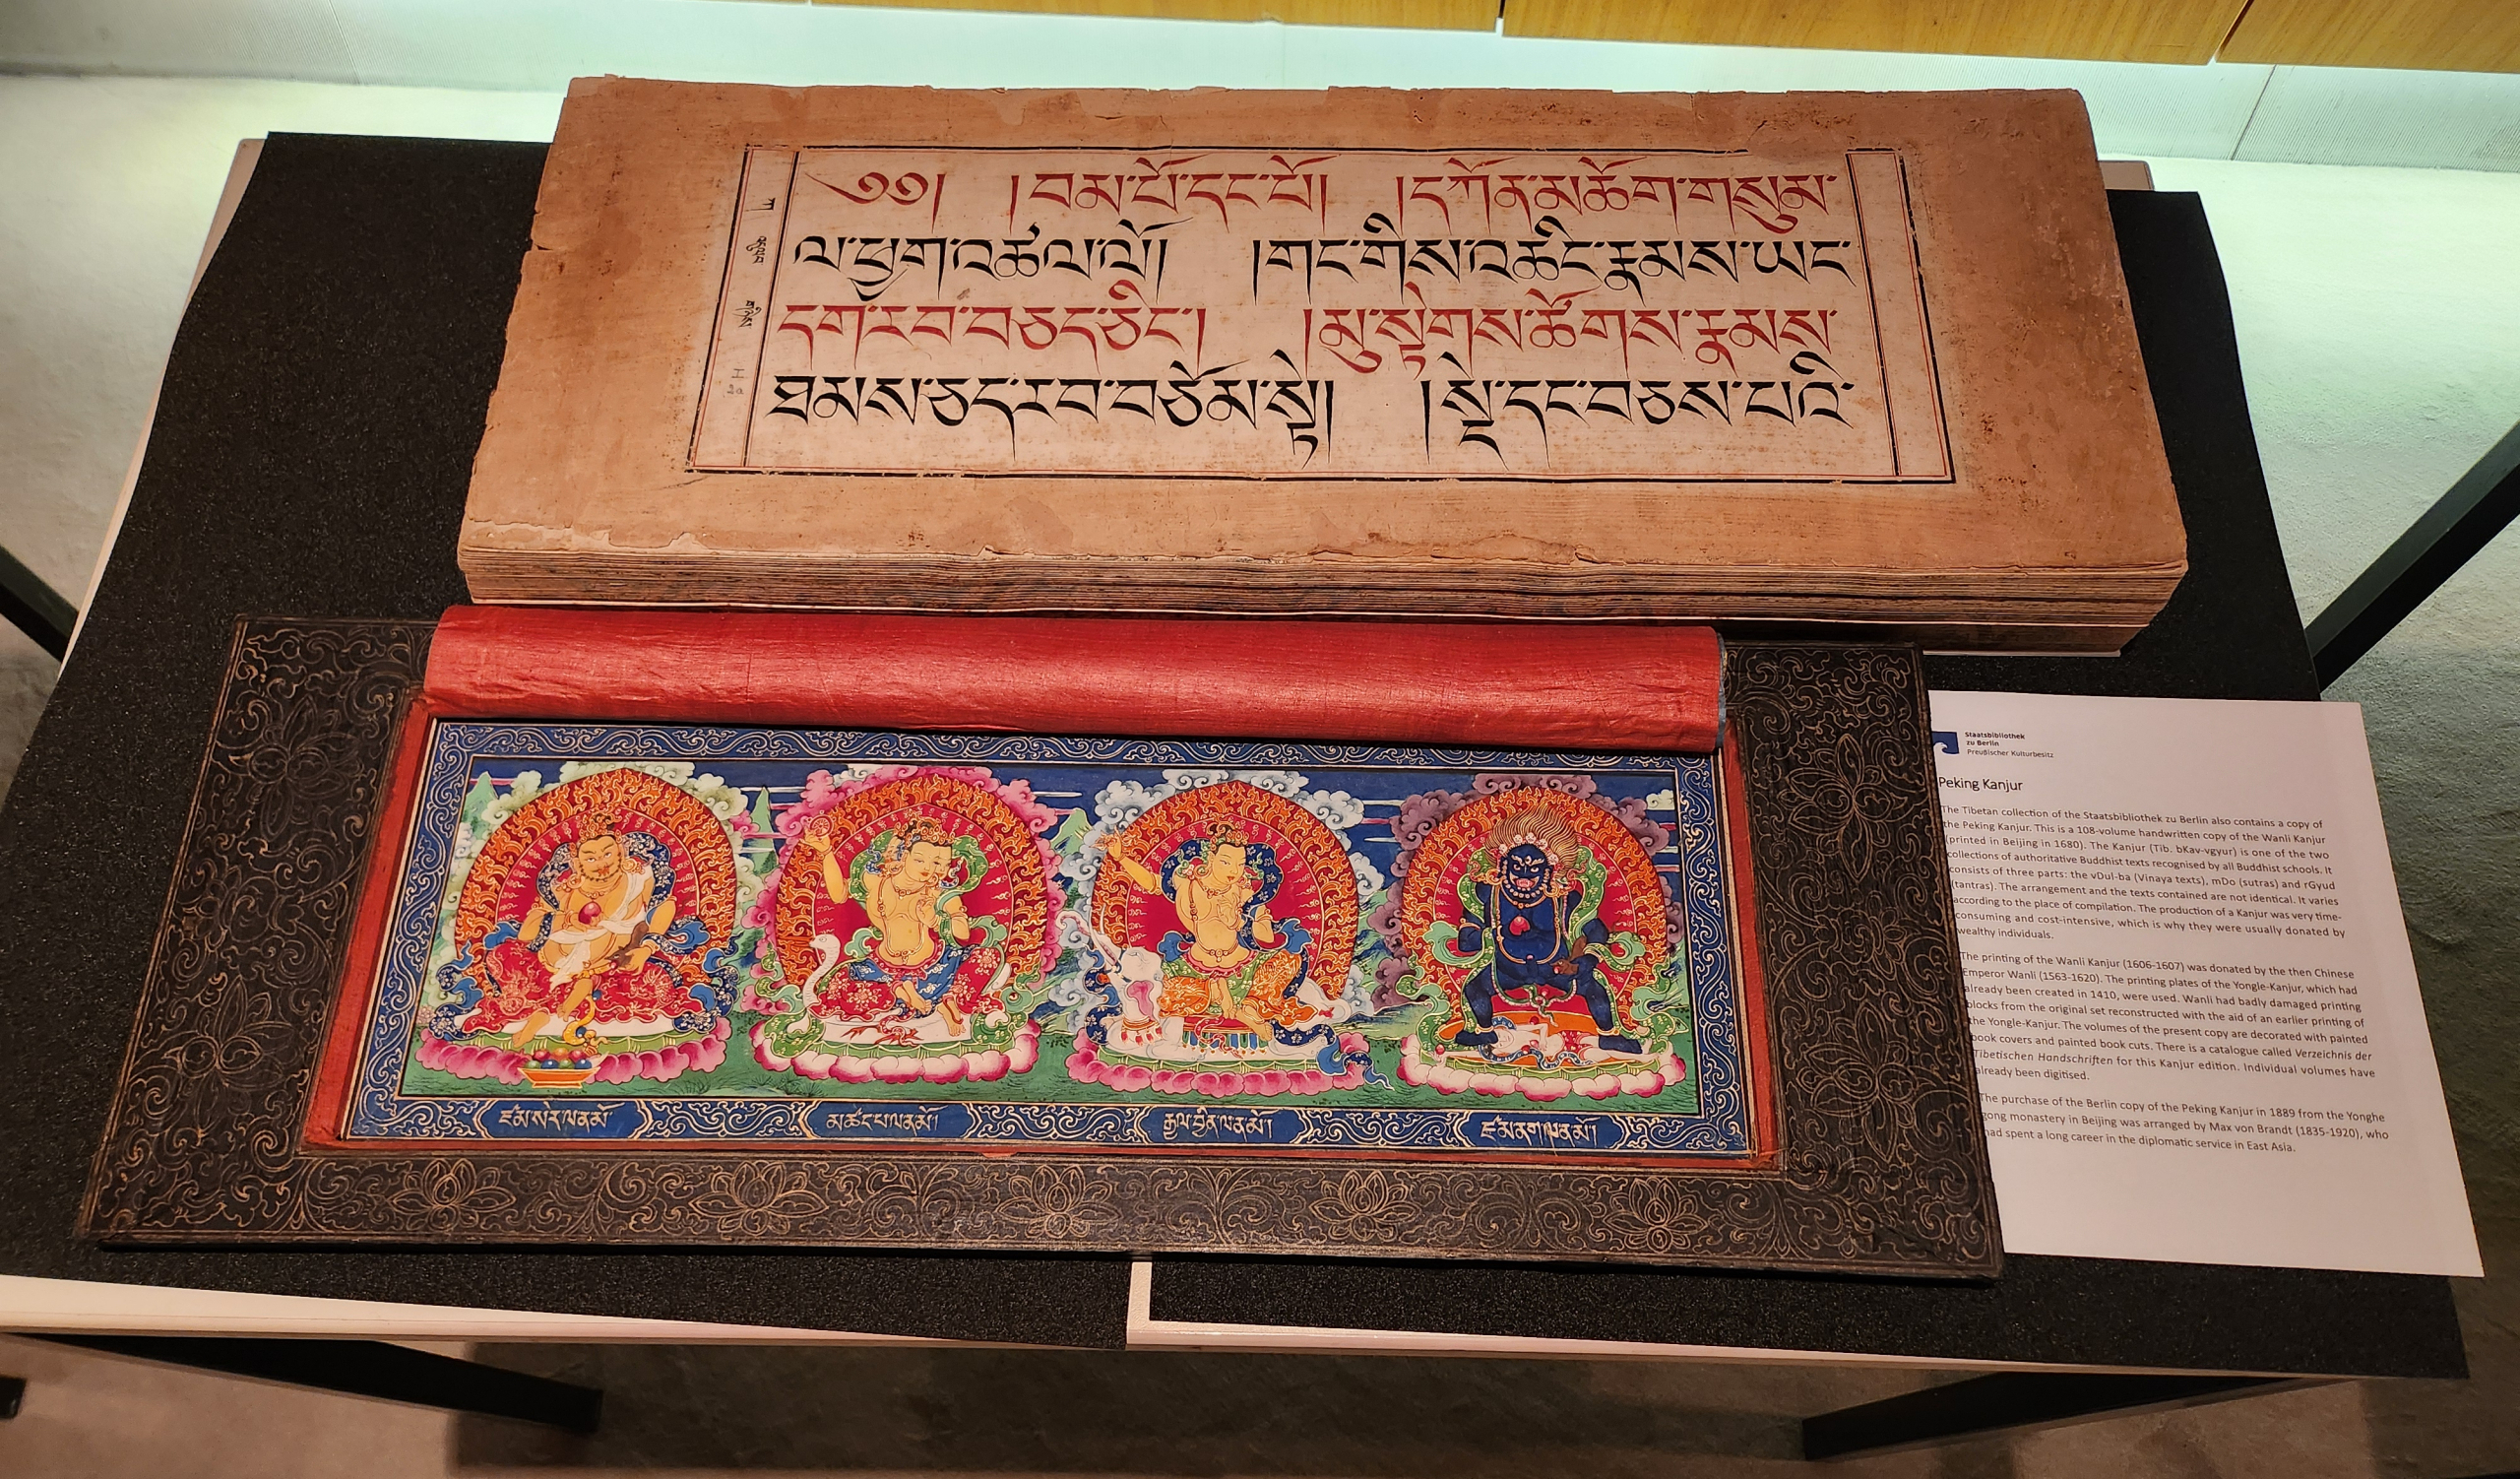 ༄༅། །བམ་པོ་དང་པོ། །དཀོན་མཆོག་གསུམ་
ལ་ཕྱག་འཚལ་ལོ། །གང་གིས་འཆིང་རྣམས་ཡང་
དགར་བ་བཅད་ཅིང་། །མུ་སྟེགས་ཚོགས་རྣམས་
ཐམས་ཅད་རབ་བཅོམ་སྟེ། །སྡེ་དང་བཅས་པའི་
ཀ
འདུལ་བ
གཉིས
ཛཾ་སེར་ལ་ན་མོ
མ་ཚངས་པ་ལ་ན་མོ།
རྒྱལ་བྱིན་ལ་ན་མོ།
ཛཾ་ནག་ལ་ན་མོ།
Staatsbibliothek
zu Berlin
Preußischer Kulturbesitz
Peking Kanjur
The Tibetan collection of the Staatsbibliothek zu Berlin also contains a copy of
the Peking Kanjur. This is a 108-volume handwritten copy of the Wanli Kanjur
(printed in Beijing in 1680). The Kanjur (Tib. bKav-vgyur) is one of the two
collections of authoritative Buddhist texts recognised by all Buddhist schools. It
consists of three parts: the vDul-ba (Vinaya texts), mDo (sutras) and rGyud
(tantras). The arrangement and the texts contained are not identical. It varies
according to the place of compilation. The production of a Kanjur was very time-
consuming and cost-intensive, which is why they were usually donated by
wealthy individuals.
The printing of the Wanli Kanjur (1606-1607) was donated by the then Chinese
Emperor Wanli (1563-1620). The printing plates of the Yongle-Kanjur, which had
already been created in 1410, were used. Wanli had badly damaged printing
blocks from the original set reconstructed with the aid of an earlier printing of
the Yongle-Kanjur. The volumes of the present copy are decorated with painted
book covers and painted book cuts. There is a catalogue called Verzeichnis der
Tibetischen Handschriften for this Kanjur edition. Individual volumes have
already been digitised.
The purchase of the Berlin copy of the Peking Kanjur in 1889 from the Yonghe
gong monastery in Beijing was arranged by Max von Brandt (1835-1920), who
had spent a long career in the diplomatic service in East Asia.